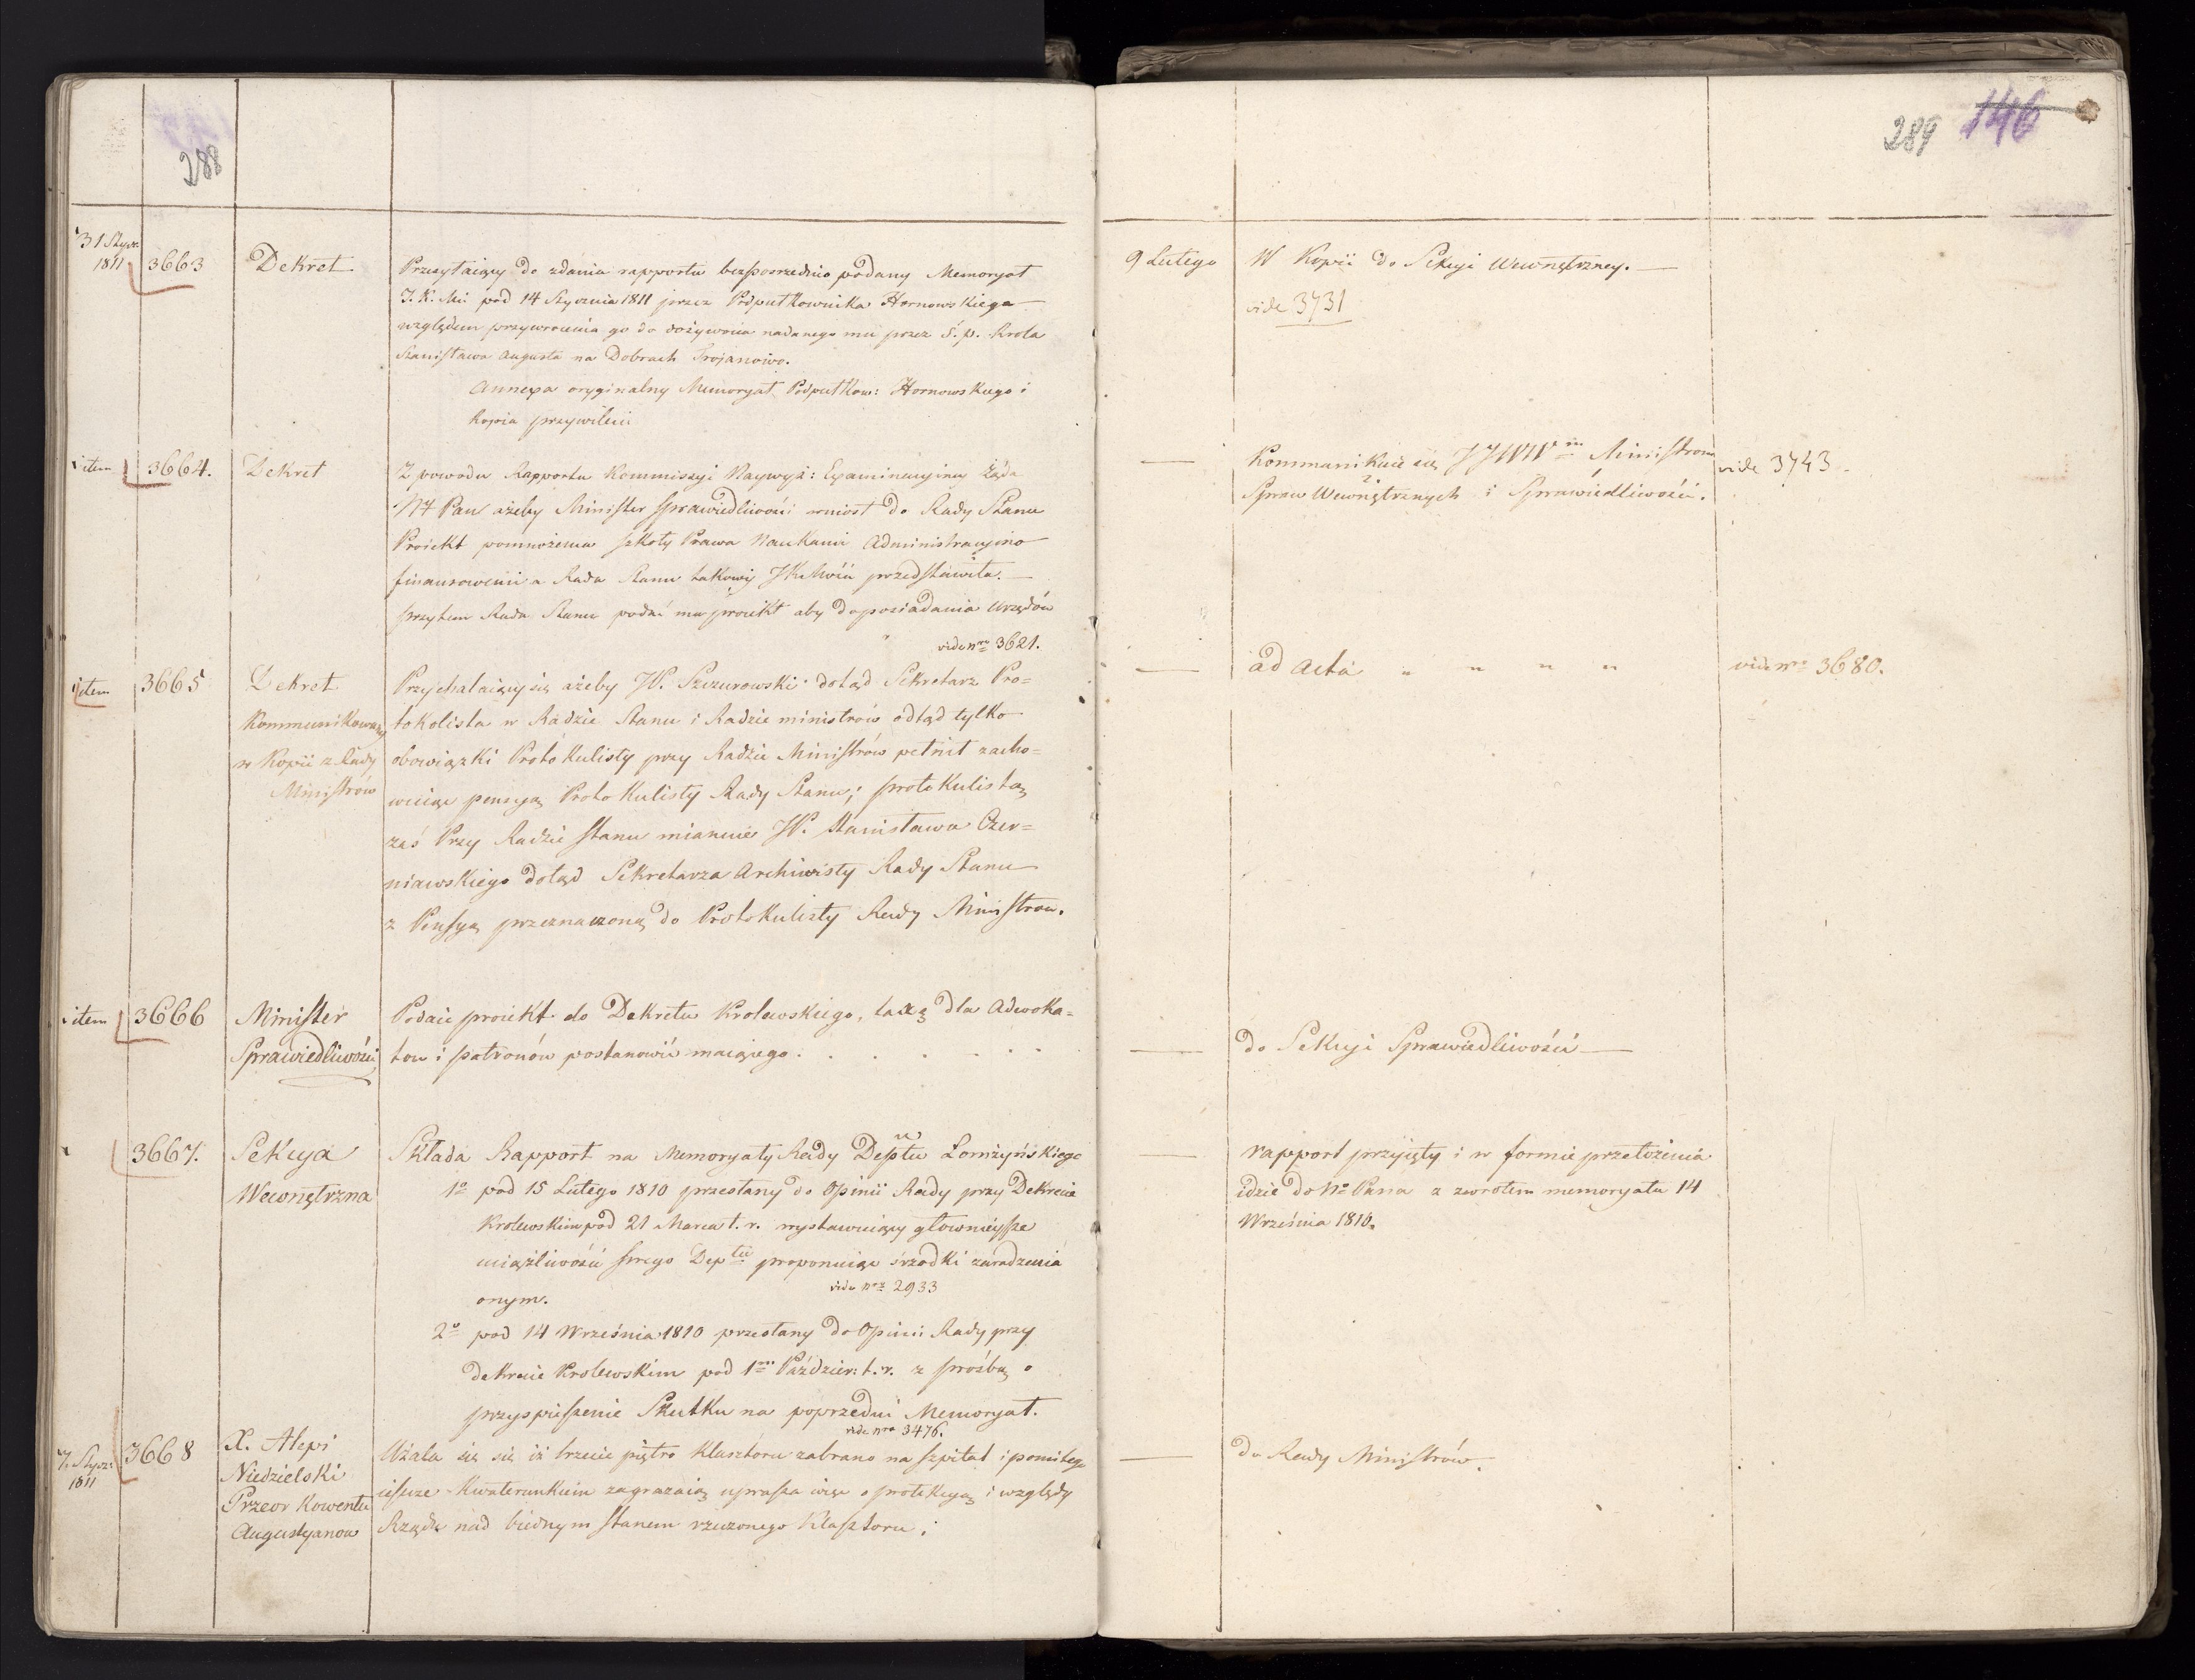 288
31 Stycz:
1811
3663
Dekret
Przesyłaiący do zdania rapportu bezposrzednio podany Memoryał
J. K. Mci pod 14 Stycznia 1811 przez Podpułkownika Hornowskiego
względem przywrocenia go do dożywocia nadanego mu przez ś. p. Krola
Stanisława Augusta na Dobrach Trojanowo.
Annexa oryginalny Memoryał Podpułkow: Hornowskiego i
kopia przywileiu
item
3664.
Dekret
Z powodu Rapportu Kommissyi Naywyż: Examinacyiney żąda
NPan ażeby Minister Sprawiedliwości wniosł do Rady Stanu
Proiekt pomnożenia szkoły Prawa Naukami Administracyino
finansowemi a Rada Stanu takowy JKMości przedstawiła.
przytem Rada Stanu podać ma proiekt aby do posiadania urzędów
vide nro 3621.
item
3665
Dekret
Kommunikowany
w Kopii z Rady
Ministrów
Przychalaiący się ażeby JP. Szczurowski dotąd Sekretarz Pro=
tokolista w Radzie Stanu i Radzie ministrów odtąd tylko
obowiązki Protokulisty przy Radzie Ministrów pełnił zacho=
wuiąc pensyą Protokulisty Rady Stanu; protokulistą
zaś Przy Radzie Stanu mianuie JP. Stanisława Czer=
niawskiego dotąd Sekretarza Archiwisty Rady Stanu
z Pensyą przeznaczoną do Protokulisty Rady Ministrow.
item
3666
Minister
Sprawiedliwości
Podaie proiekt do Dekretu Krolewskiego, taxą dla Adwoka=
tow i patronów postanowić maiącego . . . . . .
3667.
Sekcya
Wewnętrzna
Składa Rapport na Memoryały Rady Deptu Łomżyńskiego
1o pod 15 Lutego 1810 przesłany do Opinii Rady przy Dekrecie
Krolewskim pod 21 Marca t. r. wystawuiący głownieysze
uciążliwości swego Deptu proponuiąc srzodki zaradzenia
onym.
vide nro 2933
2o pod 14 Września 1810 przesłany do Opinii Rady przy
dekrecie Krolewskim pod 1m Paździer: t. r. z prośbą o
przyspieszenie Skutku na poprzedni Memoryał.
vide nro 3476.
7. Stycz:
1811
3668
X. Alexi
Niedzielski
Przeor Kowentu
Augustyanow
Użala się się iż trzecie piętro klasztoru zabrano na szpital i pomimo tego
ieszcze Kwaterunkiem zagrażaią uprasza więc o protekcyą i względy
Rządu nad biednym stanem rzeczonego Klasztoru;
289 146
9 Lutego
W Kopii do Sekcyi Wewnętrzney.
vide 3731
Kommunikuie się JJWW Ministrom
Spraw Wewnętrznych i Sprawiedliwości.
vide 3743.
ad acta
vide nro 3680.
do Sekcyi Sprawiedliwości
rapport przyięty i w formie przełożenia
idzie do No Pana z zwrotem memoryału 14
Września 1810.
do Rady Ministrów.